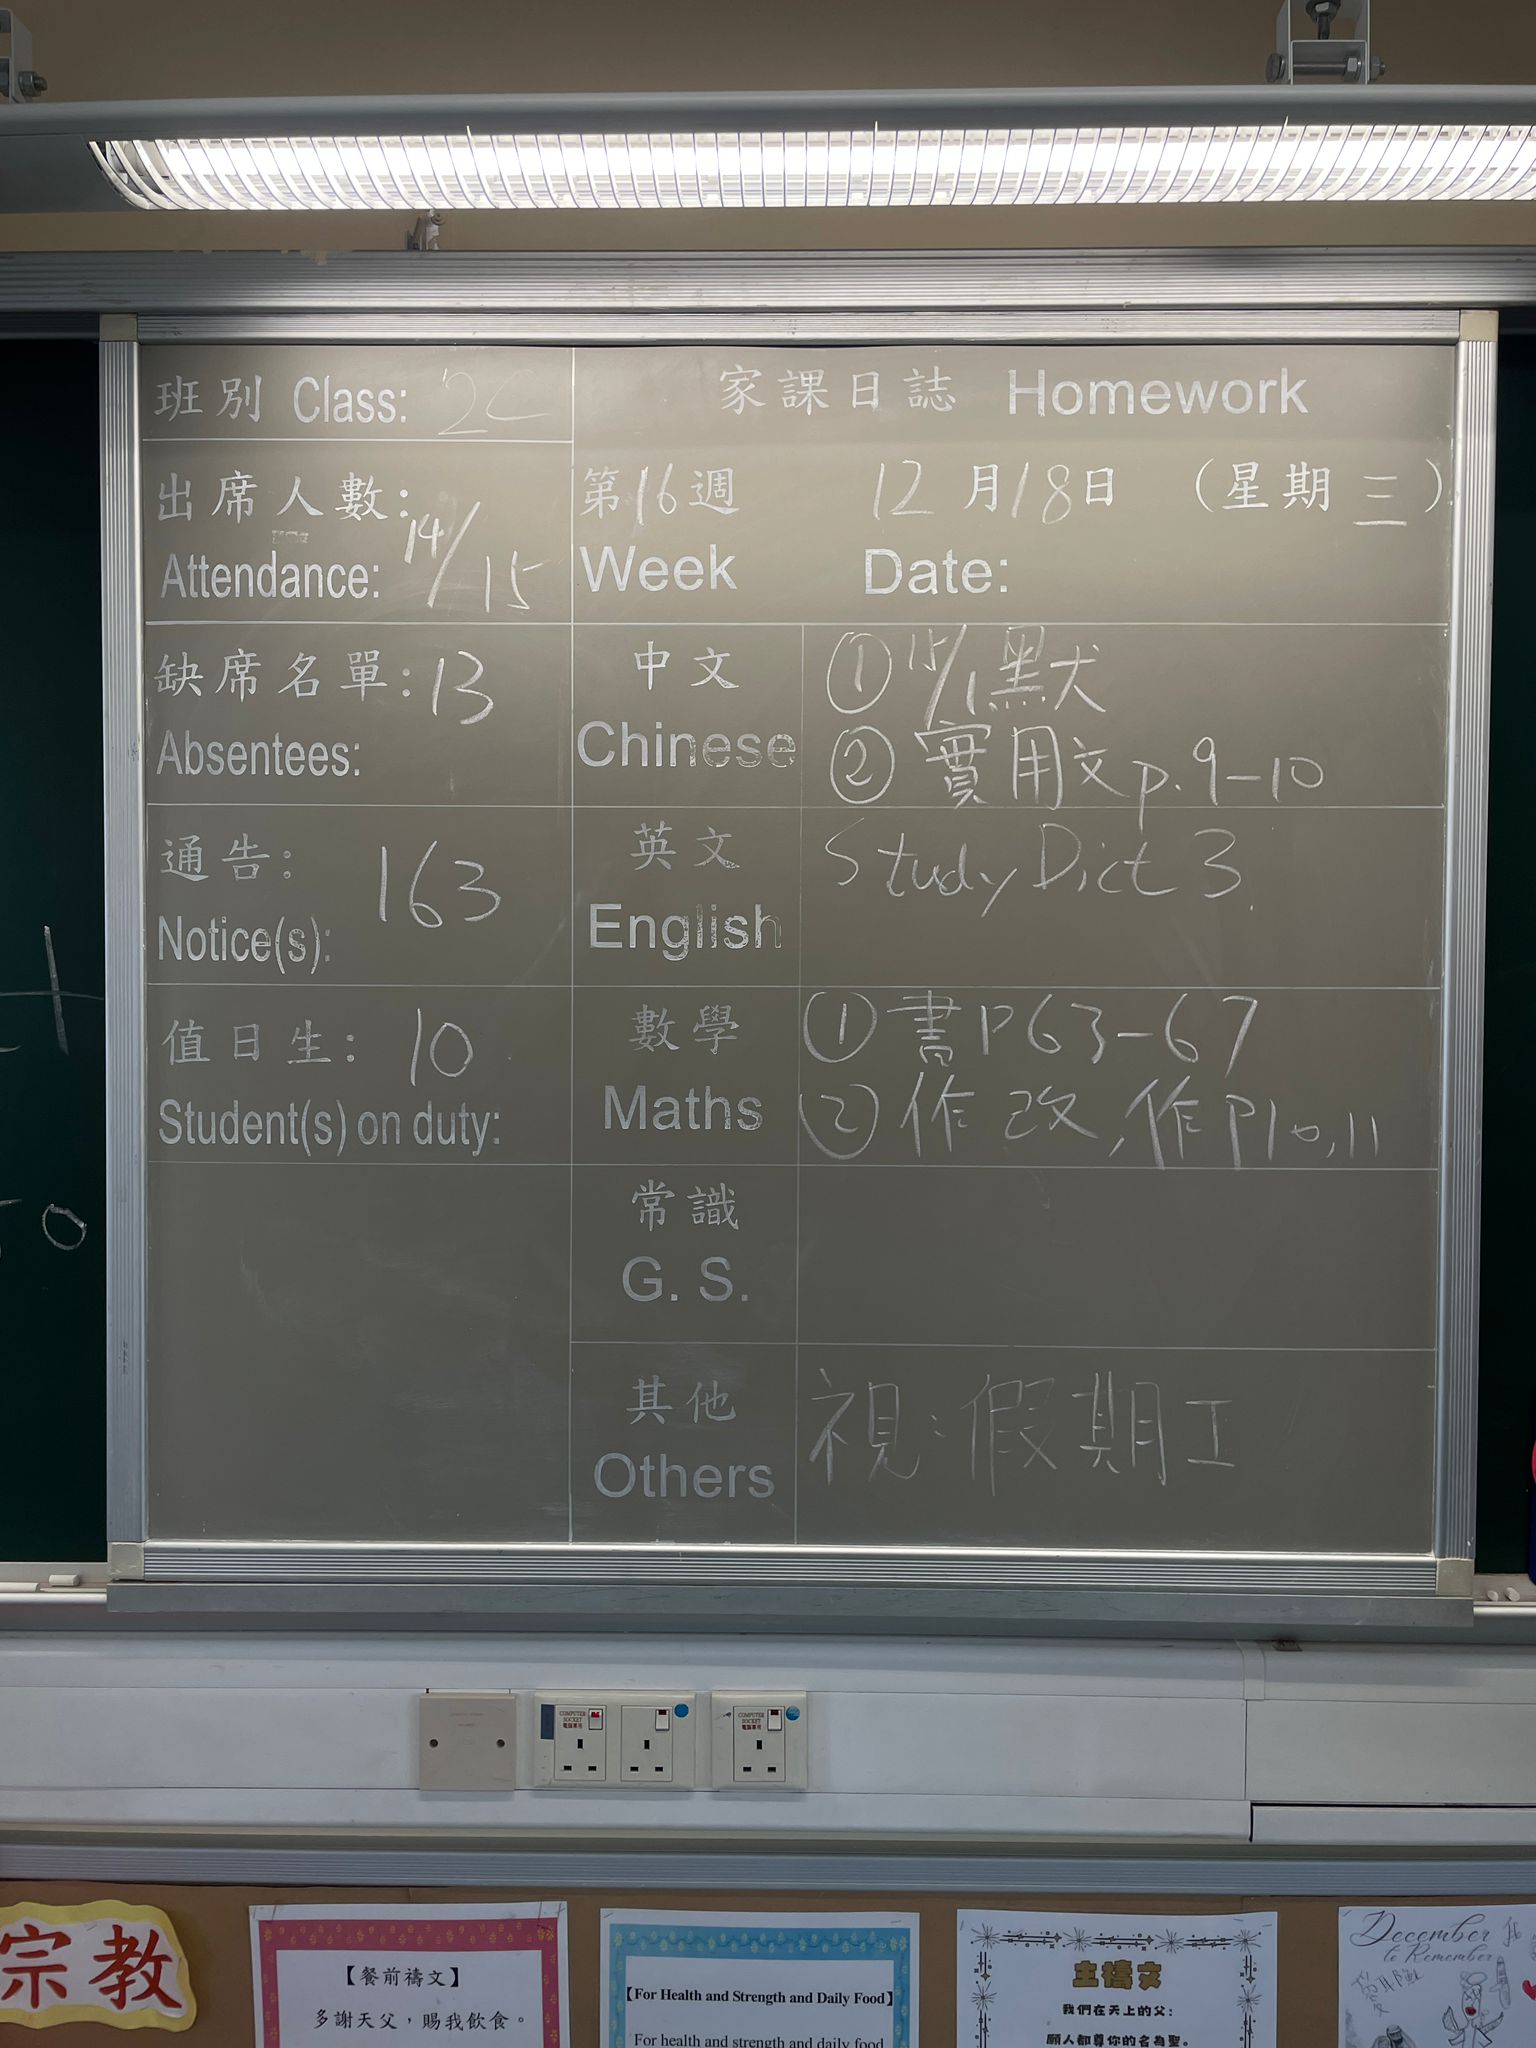 班別 Class: 2C
家課日誌 Homework
出席人數:
Attendance: 14/15
第16週 12月18日 (星期三)
Week Date:
缺席名單: 13
Absentees:
通告: 163
Notice(s):
值日生: 10
Student(s) on duty:
中文 ① 15/1默
Chinese ② 實用文p.9-10
英文 Study Dict 3.
English
數學 ①書P63-67
Maths ②作改,作P10,11
常識
G. S.
其他 視:假期工
Others
COMPUTER SOCKET 電腦專用
COMPUTER SOCKET 電腦專用
宗教
【餐前禱文】
多謝天父,賜我飲食。
【For Health and Strength and Daily Food】
For health and strength and daily food
主禱文
我們在天上的父:
願人都尊你的名為聖。
December
to Remember